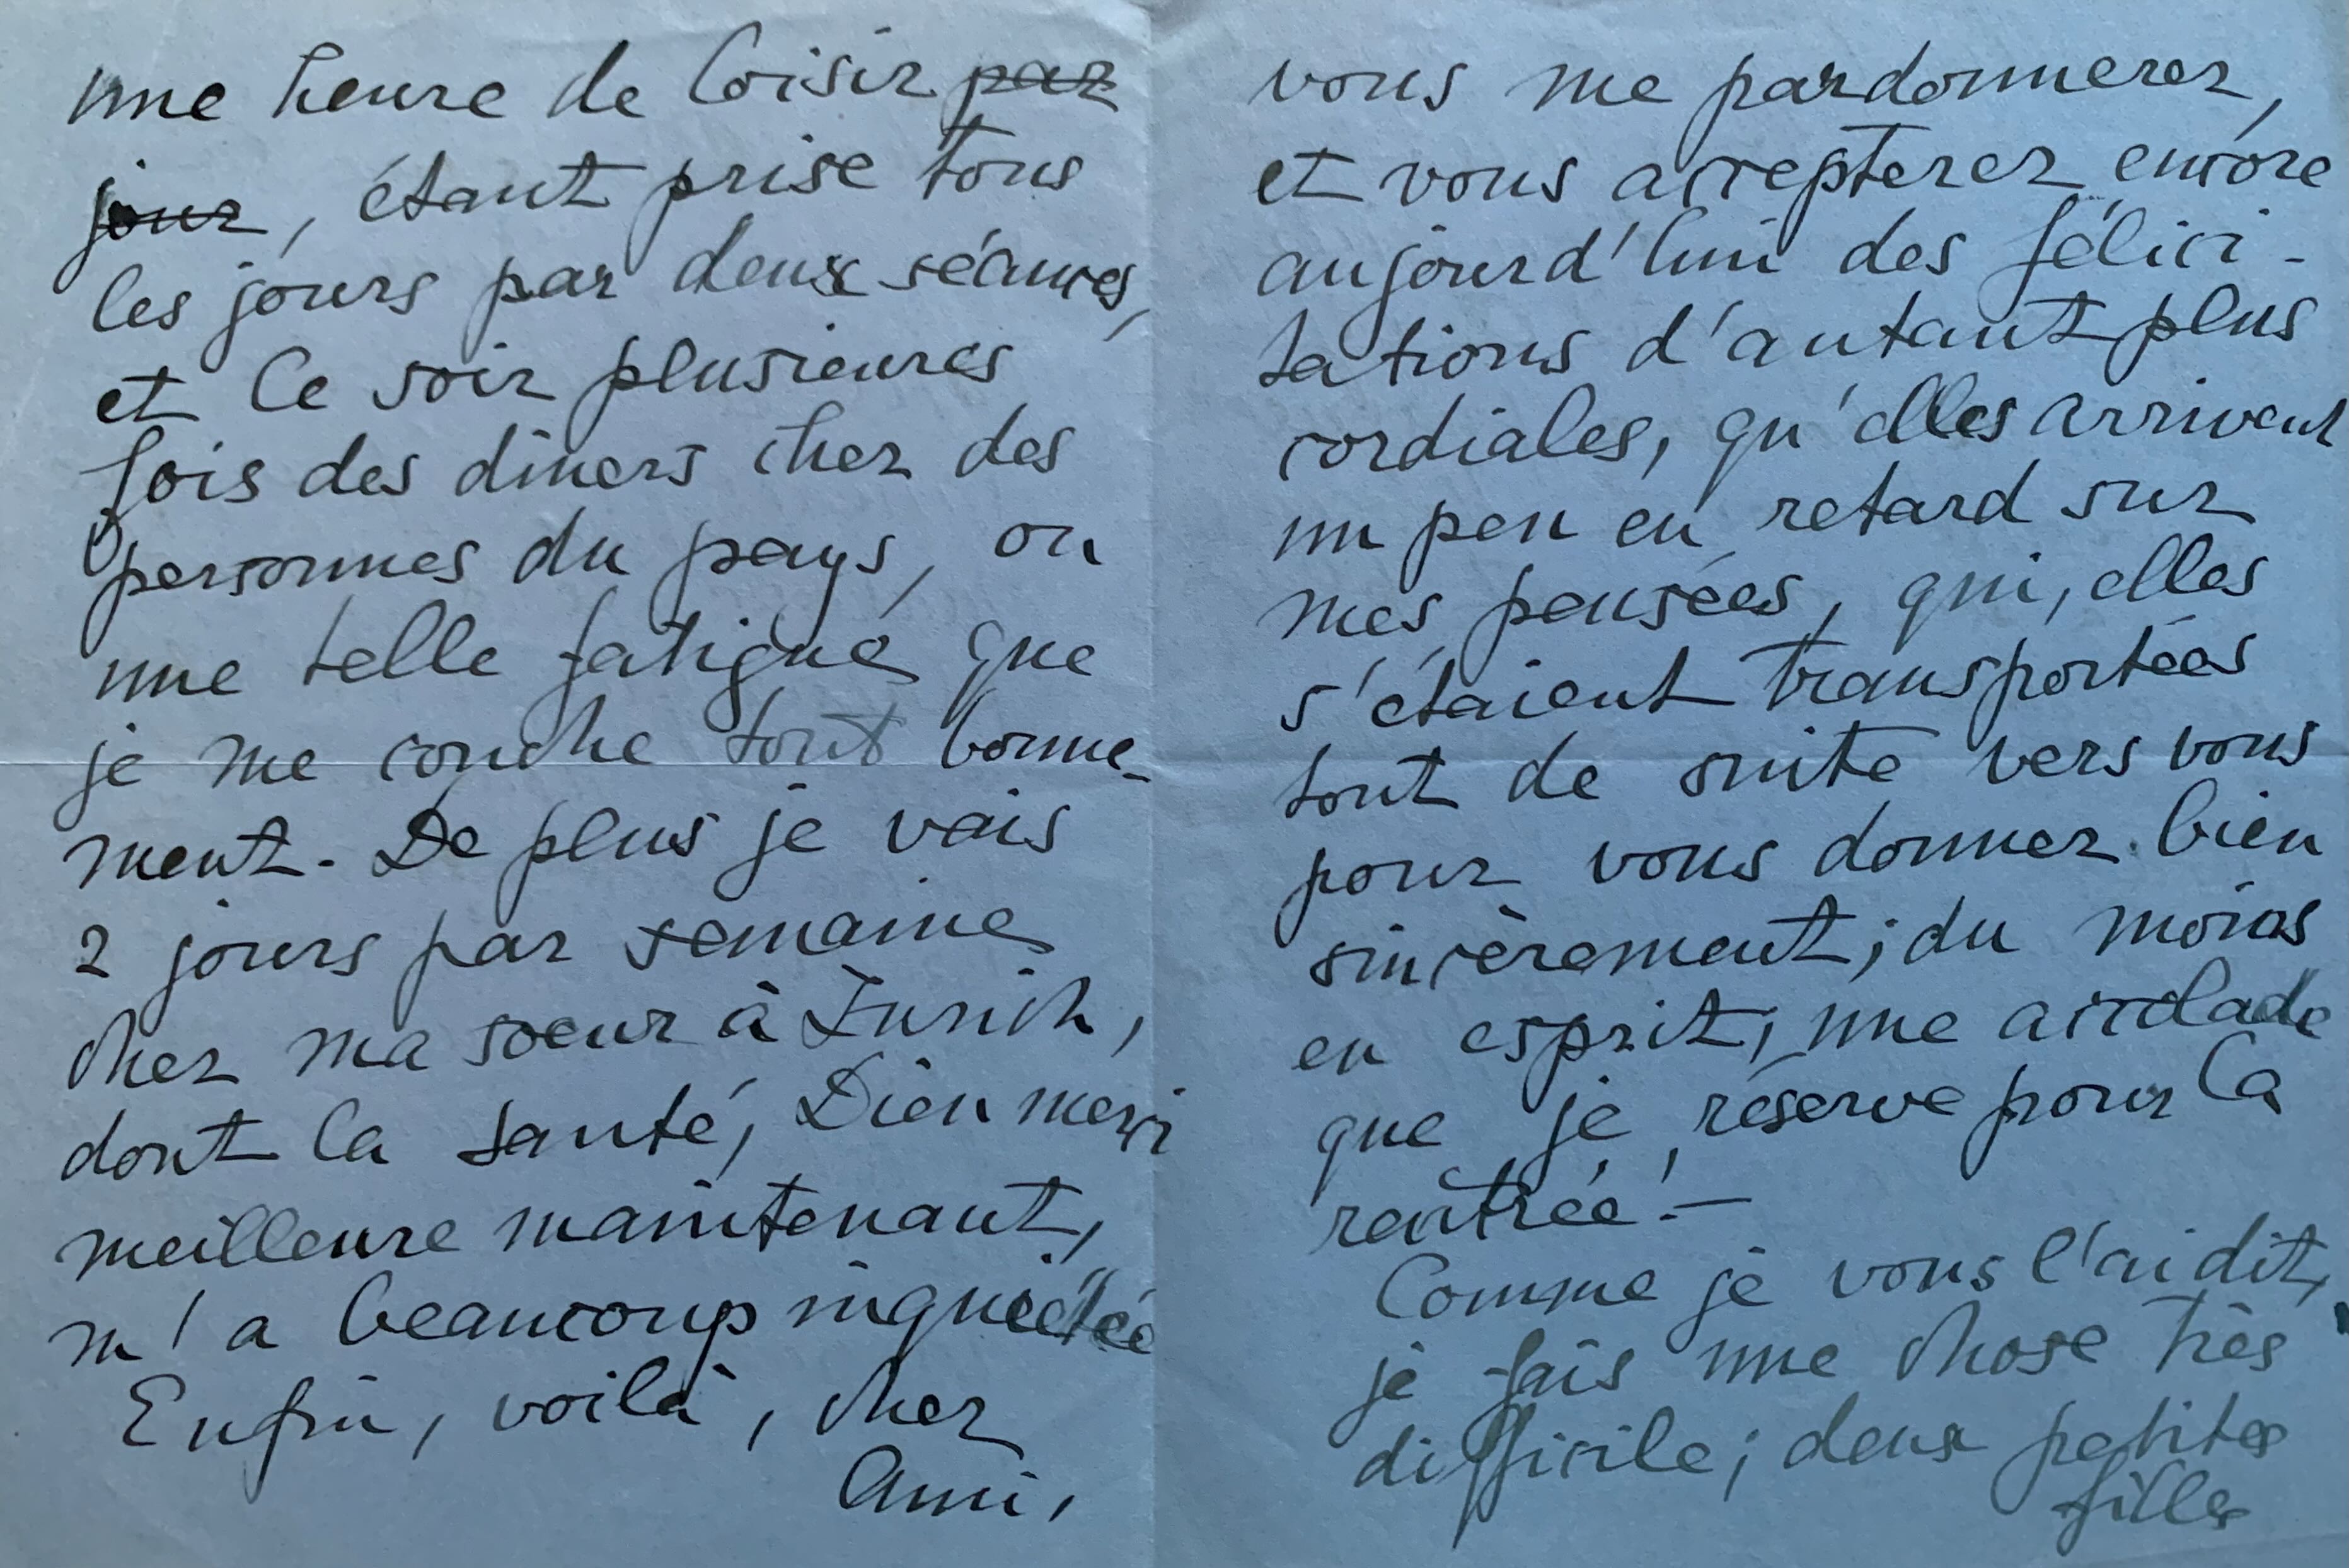 une heure de loisir par
jour, étant prise tous
les jours par deux séances,
et le soir plusieures
fois des dîners chez des
personnes du pays, ou
une telle fatigue que
je me couche tout bonne-
ment. De plus je vais
2 jours par semaine
chez ma soeur à Zurich,
dont la santé, Dieu merci
meilleure maintenant,
m'a beaucoup inquiétée
Enfin, voilà, cher
Ami,
vous me pardonnerez,
et vous accepterez encore
aujourd'hui des félici-
tations d'autant plus
cordiales, qu'elles arrivent
un peu en retard sur
mes pensées, qui, elles
s'étaient transportées
tout de suite vers vous
pour vous donner bien
sincèrement; du moins
en esprit; une accolade
que je réserve pour la
rentrée! —
Comme je vous l'ai dit,
je fais une chose très
difficile; deux petites
filles